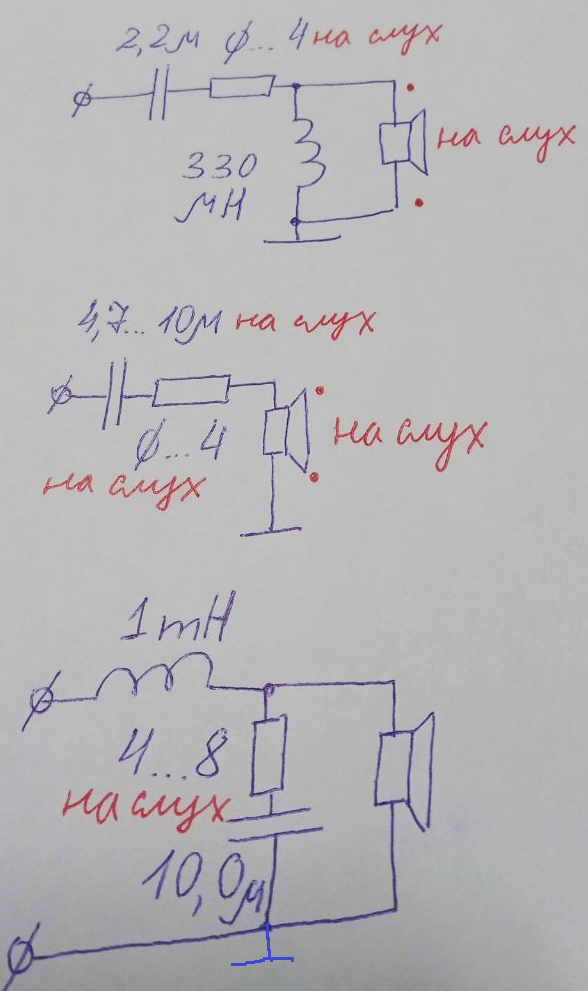 2,2м ϕ...4 на слух
на слух
330
мН
4,7...10м на слух
на слух
ϕ...4
на слух
1mH
4...8
на слух
10,0м